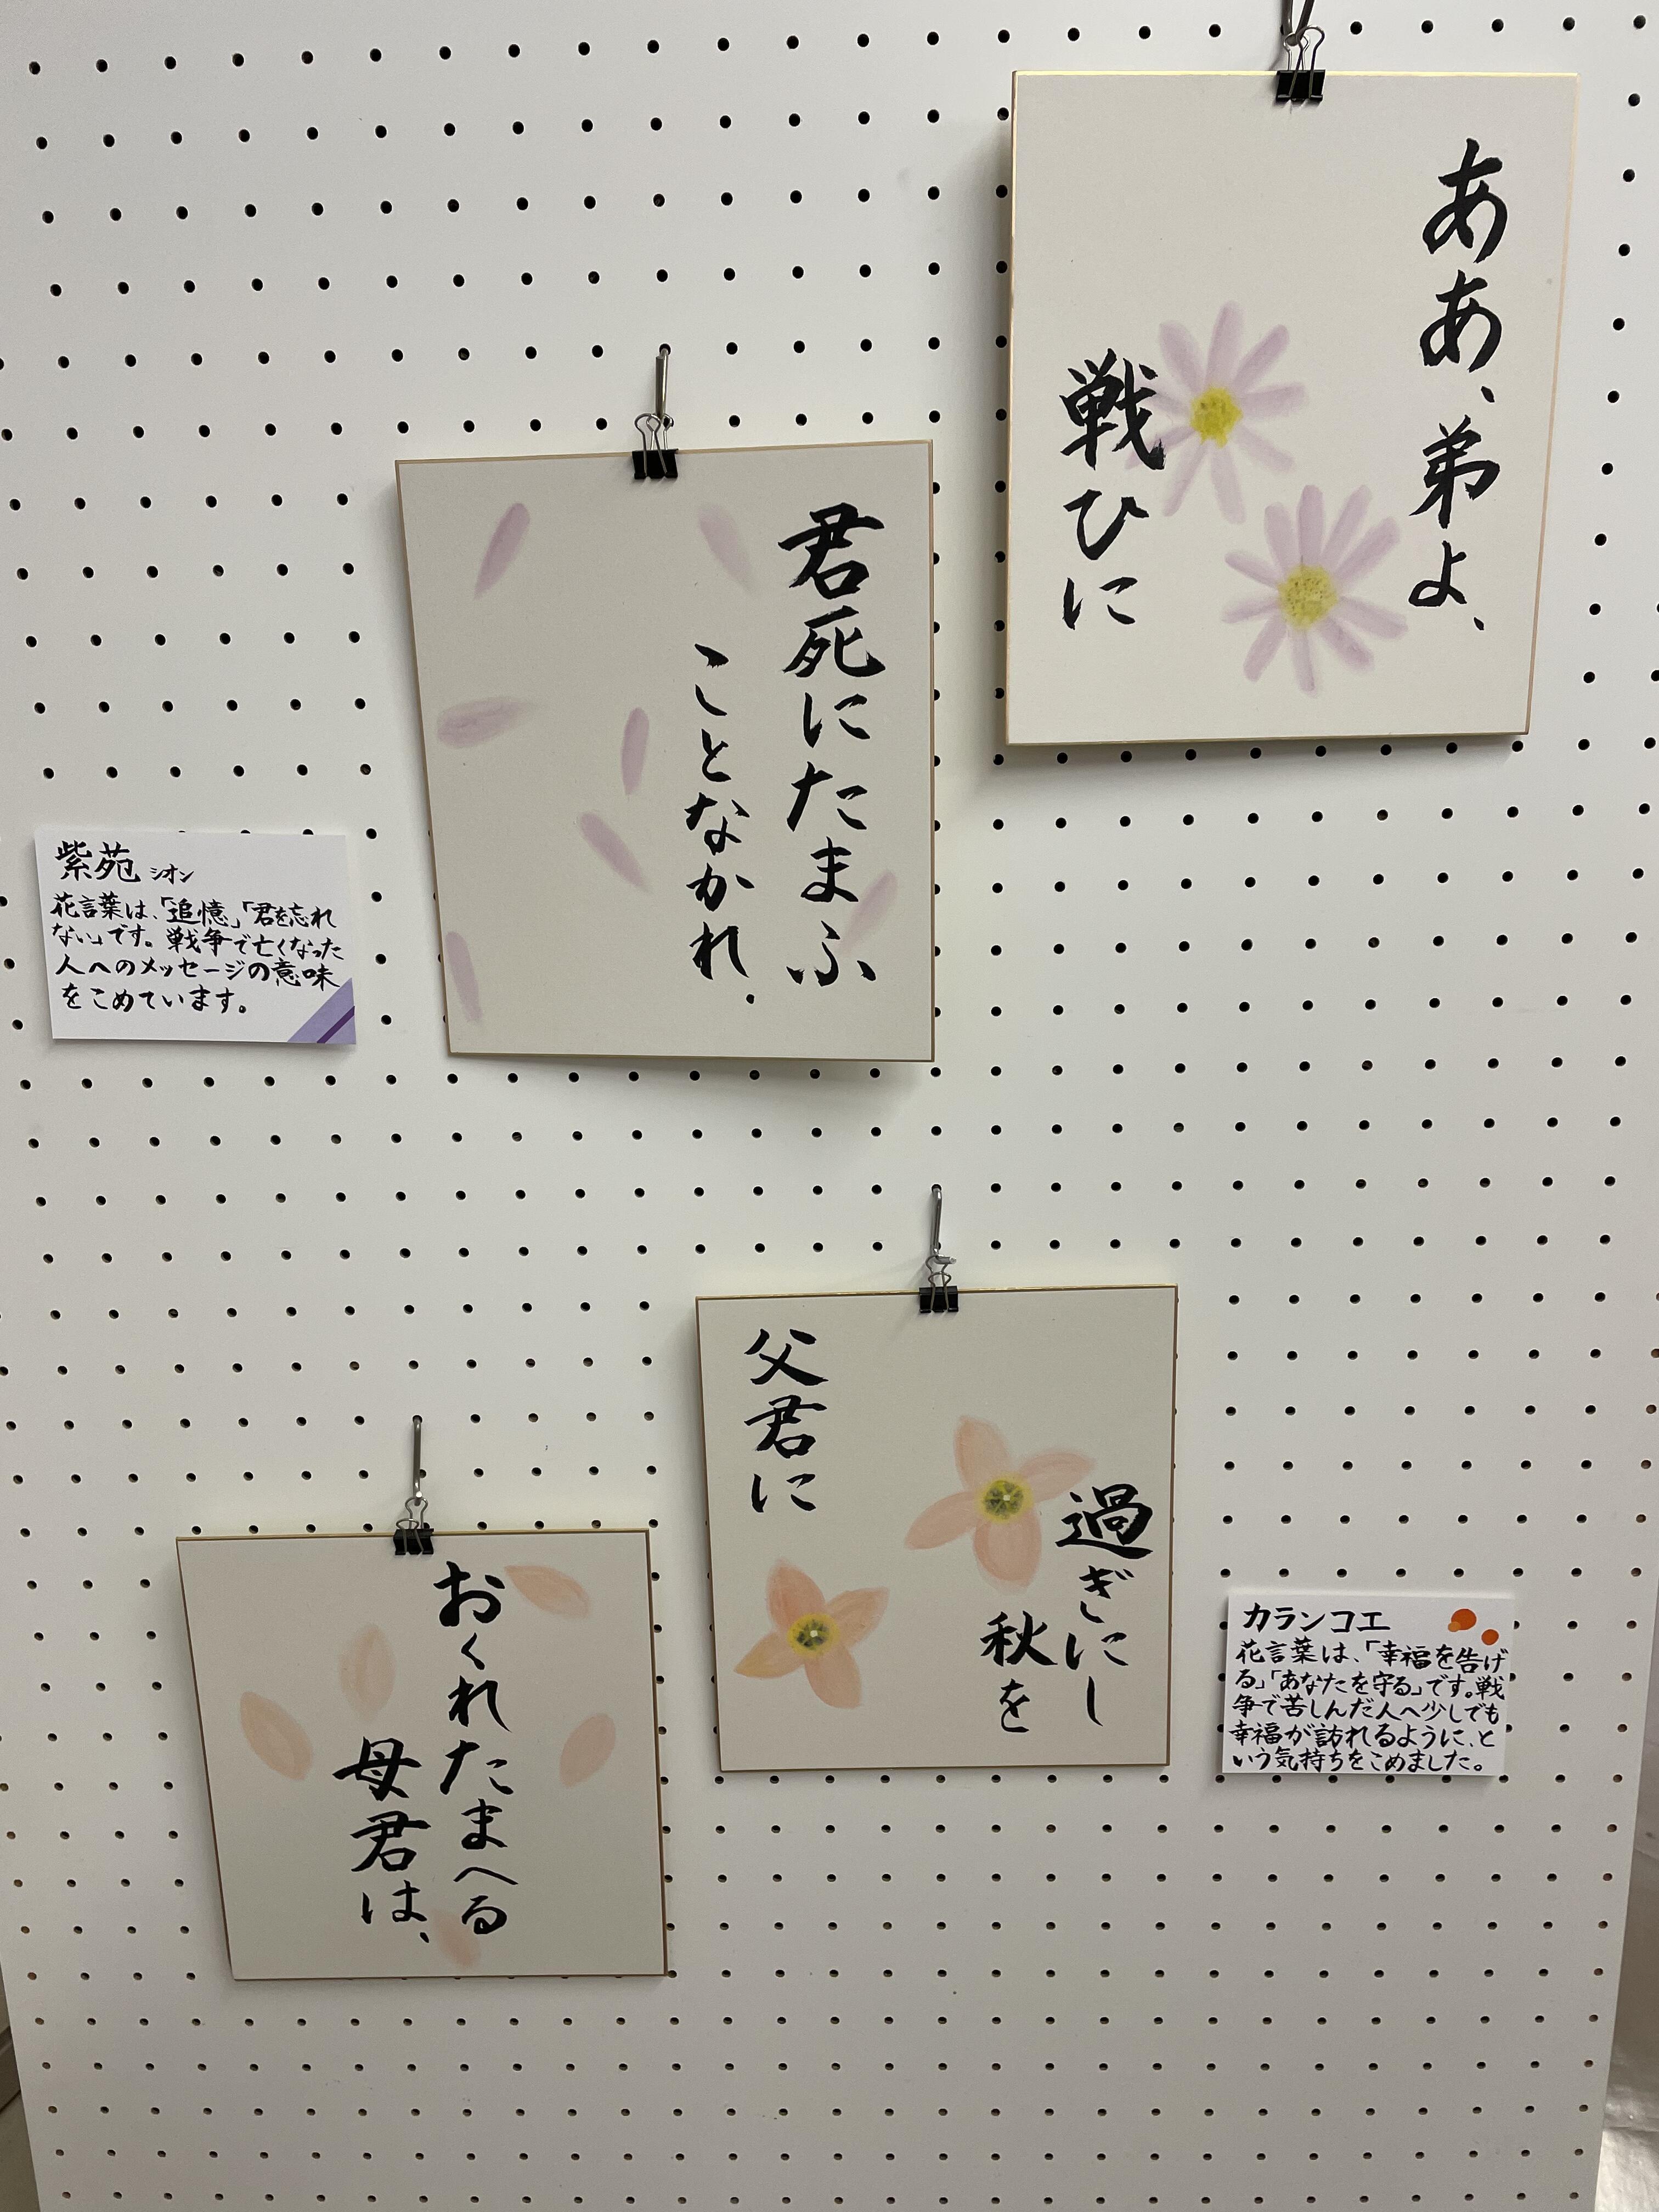 ああ、弟よ、
戦ひに
君死にたまふ
ことなかれ。
紫苑 シオン
花言葉は、「追憶」「君を忘れ
ない」です。戦争で亡くなった
人へのメッセージの意味
をこめています。
過ぎにし
秋を
父君に
おくれたまへる
母君は、
カランコエ
花言葉は、「幸福を告げ
る」「あなたを守る」です。戦
争で苦しんだ人へ少しでも
幸福が訪れるように、と
いう気持ちをこめました。